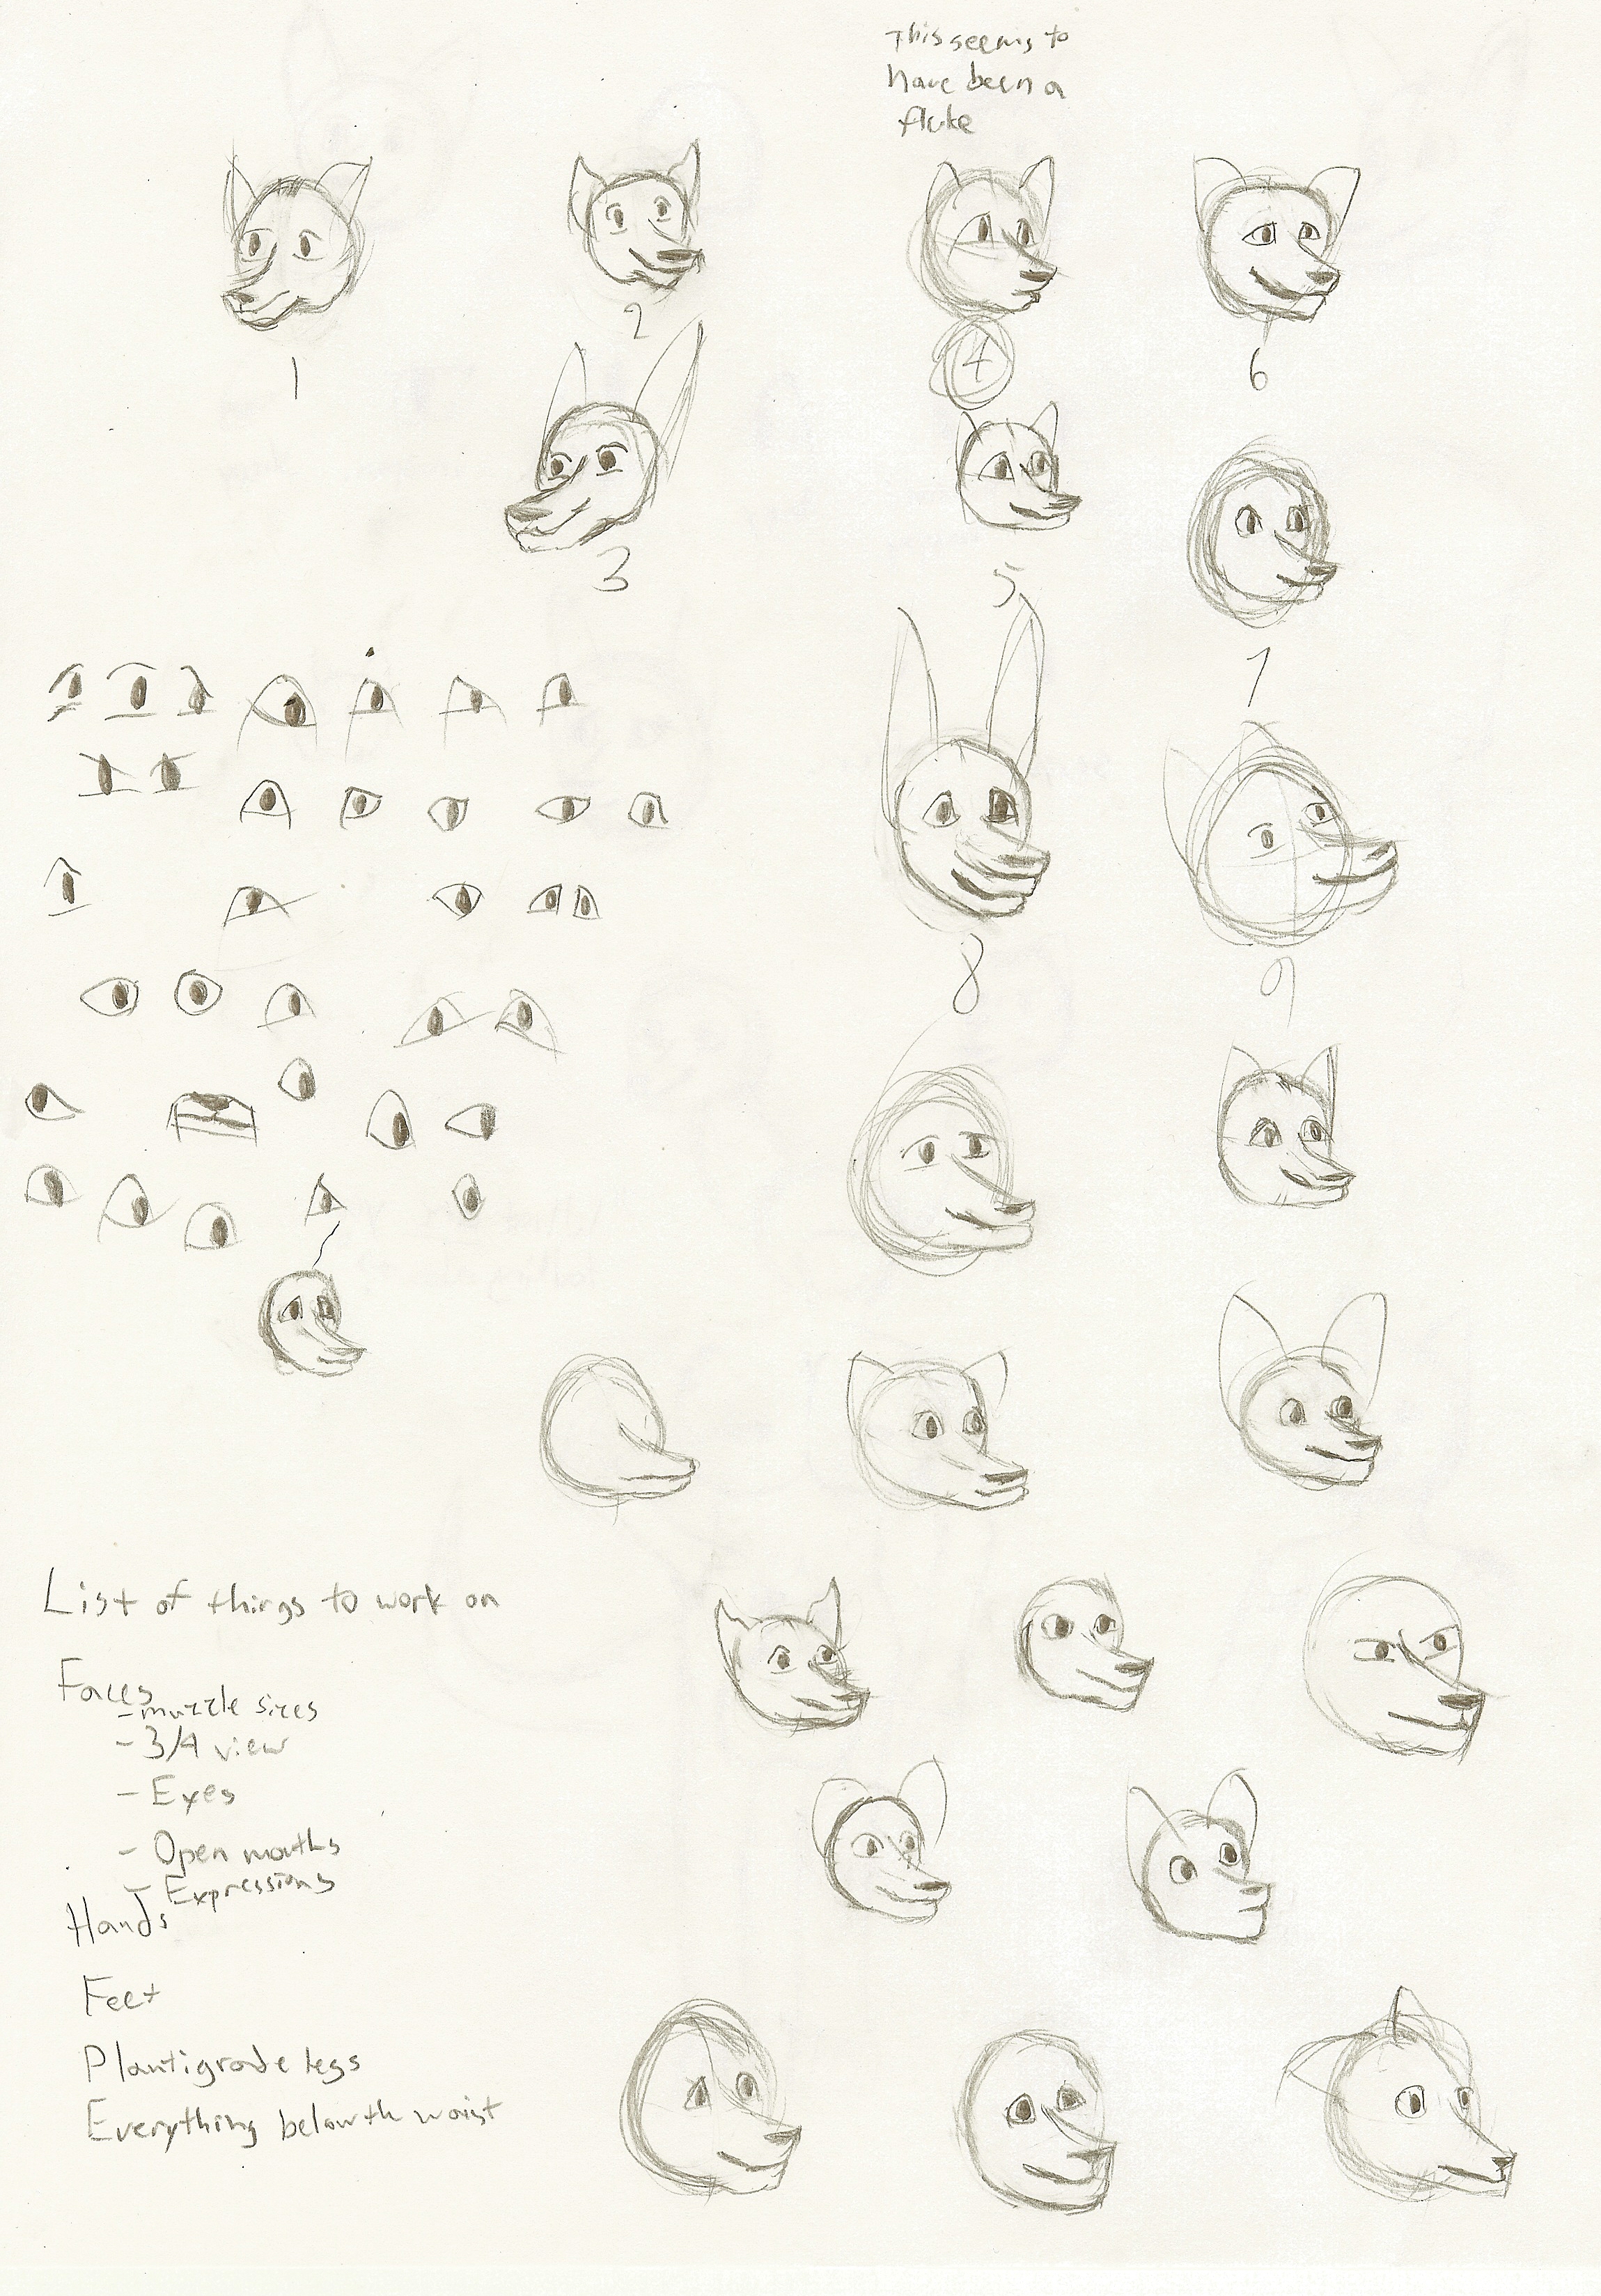 This seems to
have been a
fluke
1
2
3
4
5
6
7
8
9
List of things to work on
Faces
- muzzle sizes
- 3/4 view
- Eyes
- Open mouths
- Expressions
Hands
Feet
Plantigrade legs
Everything belowth waist